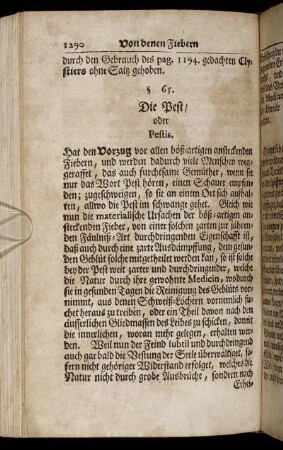 1290 Von denen Fiebern
durch den Gebrauch des pag. 1194. gedachten Cly-
stiers ohne Saltz gehoben.
§ 65.
Die Pest/
oder
Pestis.
Hat den Vorzug vor allen böß-artigen ansteckenden
Fiebern, und werden dadurch viele Menschen weg-
geraffet, das auch furchtsame Gemüther, wenn sie
nur das Wort Pest hören, einen Schauer empfin-
den; zugeschweigen, so sie an einem Ort sich aufhal-
ten, allwo die Pest im schwange gehet. Gleich wie
nun die materialische Ursachen der böß-artigen an-
steckenden Fieber, von einer solchen zarten zur jähren-
den Fäulniß-Art durchdringenden Eigenschafft ist,
daß auch durch eine zarte Ausdämpffung, dem gesun-
den Geblüt solche mitgetheilet werden kan, so ist solche
bey der Pest weit zarter und durchdringender, welche
die Natur durch ihre gewohnte Medicin, wodurch
sie in gesunden Tagen die Reinigung des Geblüts vor-
nimmt, aus denen Schweiß-Löchern vornemlich su-
chet heraus zu treiben, oder ein Theil davon nach den
äusserlichen Gliedmassen des Leibes zu schicken, damit
die innerlichen, woran mehr gelegen, erhalten wor-
den. Weil nun der Feind subtil und durchdringend
auch gar bald die Vestung der Seele überwältiget, so-
fern nicht gehöriger Widerstand erfolget, welches die
Natur nicht durch grobe Ausbrüche, sondern nach
Erhei-